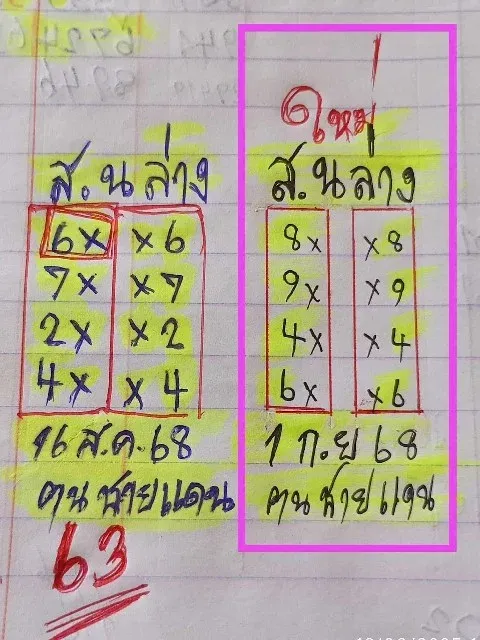 ส.น ล่าง
6x x6
7x x7
2x x2
4x x4
16 ส.ค. 68
คนชายแดน
63
ใหม่
ส.น ล่าง
8x x8
9x x9
4x x4
6x x6
1 ก.ย 68
คนชายแดน